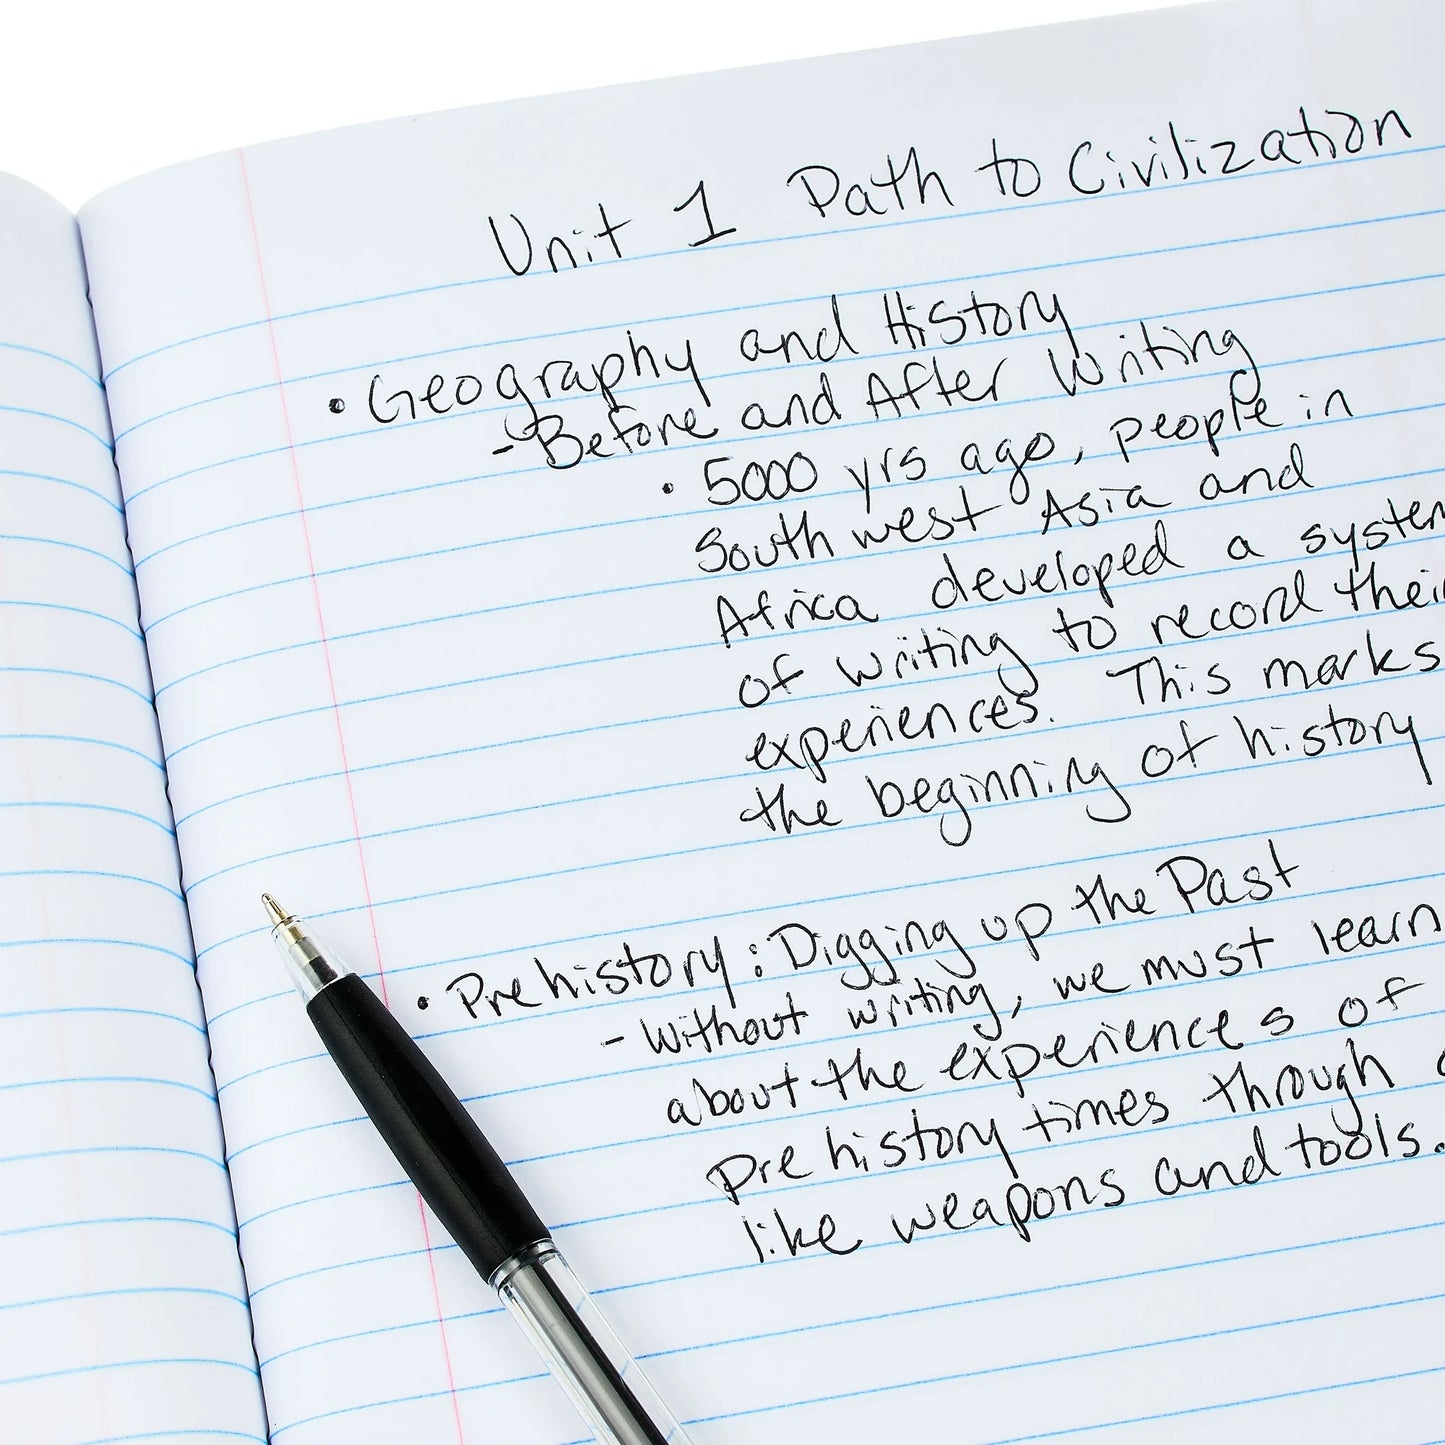 Unit 1 Path to Civilization
• Geography and History
- Before and After Writing
• 5000 yrs ago, people in
Southwest Asia and
Africa developed a system
of writing to record their
experiences. This marks
the beginning of history
• Prehistory: Digging up the Past
- Without writing, we must learn
about the experiences of
Prehistory times through
like weapons and tools.